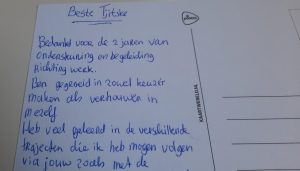 Beste Tjitske
Bedankt voor de 2 jaren van
ondersteuning en begeleiding
richting werk.
Ben gegroeid in zowel keuzes
maken als vertrouwen in
mezelf
Heb veel geleerd in de verschillende
trajecten die ik heb mogen volgen
via jouw zoals met de
KAARTWERELD.NL